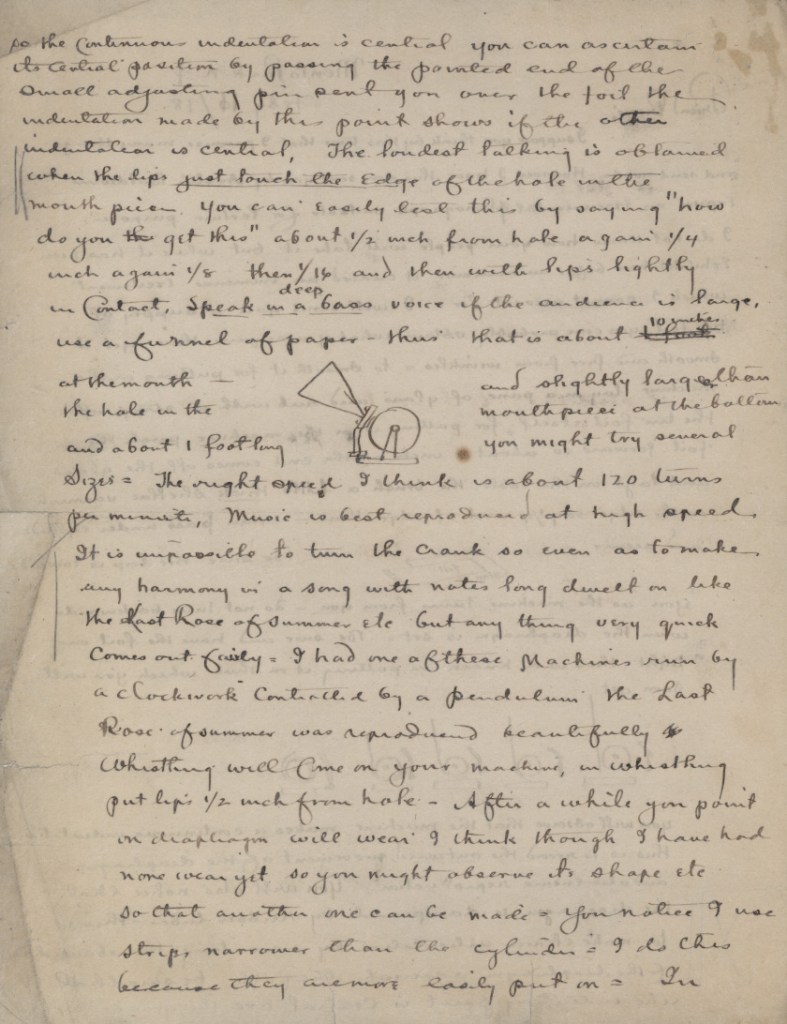 so the Continuous indentation is central you can ascertain
its central position by passing the pointed end of the
small adjusting pin sent you over the foil the
indentation made by this point shows if the other
indentation is central, The loudest talking is obtained
when the lips just touch the Edge of the hole in the
mouth piece you can Easily test this by saying "how
do you the get this" about 1/2 inch from hole again 1/4
inch again 1/8 then 1/16 and then with lips lightly
deep
in Contact, Speak in a bass voice if the audience is large,
10 inches
use a funnel of paper - thus that is about 1 foot
at the mouth — and slightly larger than
the hole in the mouth piece at the bottom
and about 1 foot long you might try several
Sizes = The right speed I think is about 120 turns
per minute, Music is best reproduced at high speed.
It is impossible to turn the Crank so even as to make
any harmony in a song with notes long dwelt on like
the Last Rose of Summer etc but any thing very quick
Comes out fairly = I had one of these Machines run by
a clockwork Controlled by a pendulum the Last
Rose of summer was reproduced beautifully
Whistling will Come on your machine, in whistling
put lips 1/2 inch from hole - After a while you point
on diaphragm will wear I think though I have had
none wear yet so you might observe its shape etc
so that another one can be made = You notice I use
strips narrower than the cylinder = I do this
because they are more easily put on = In